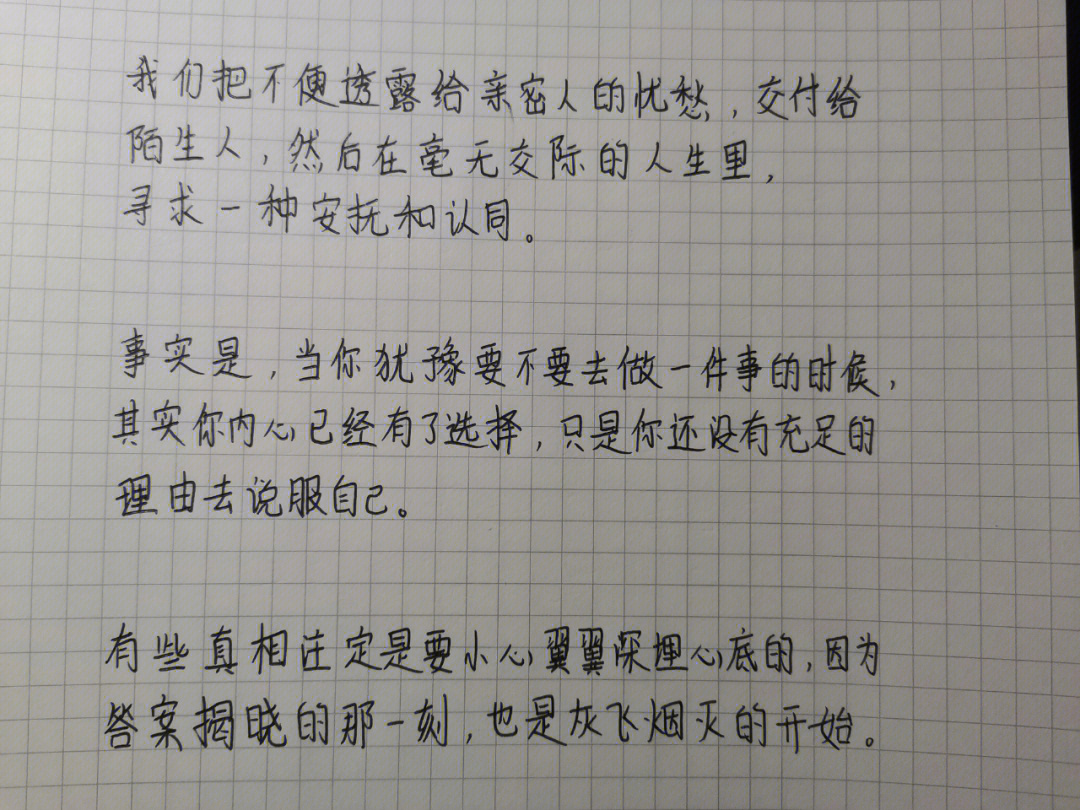 我们把不便透露给亲密人的忧愁，交付给
陌生人，然后在毫无交际的人生里，
寻求一种安抚和认同。
事实是，当你犹豫要不要去做一件事的时候，
其实你内心已经有了选择，只是你还没有充足的
理由去说服自己。
有些真相注定是要小心翼翼深埋心底的，因为
答案揭晓的那一刻，也是灰飞烟灭的开始。